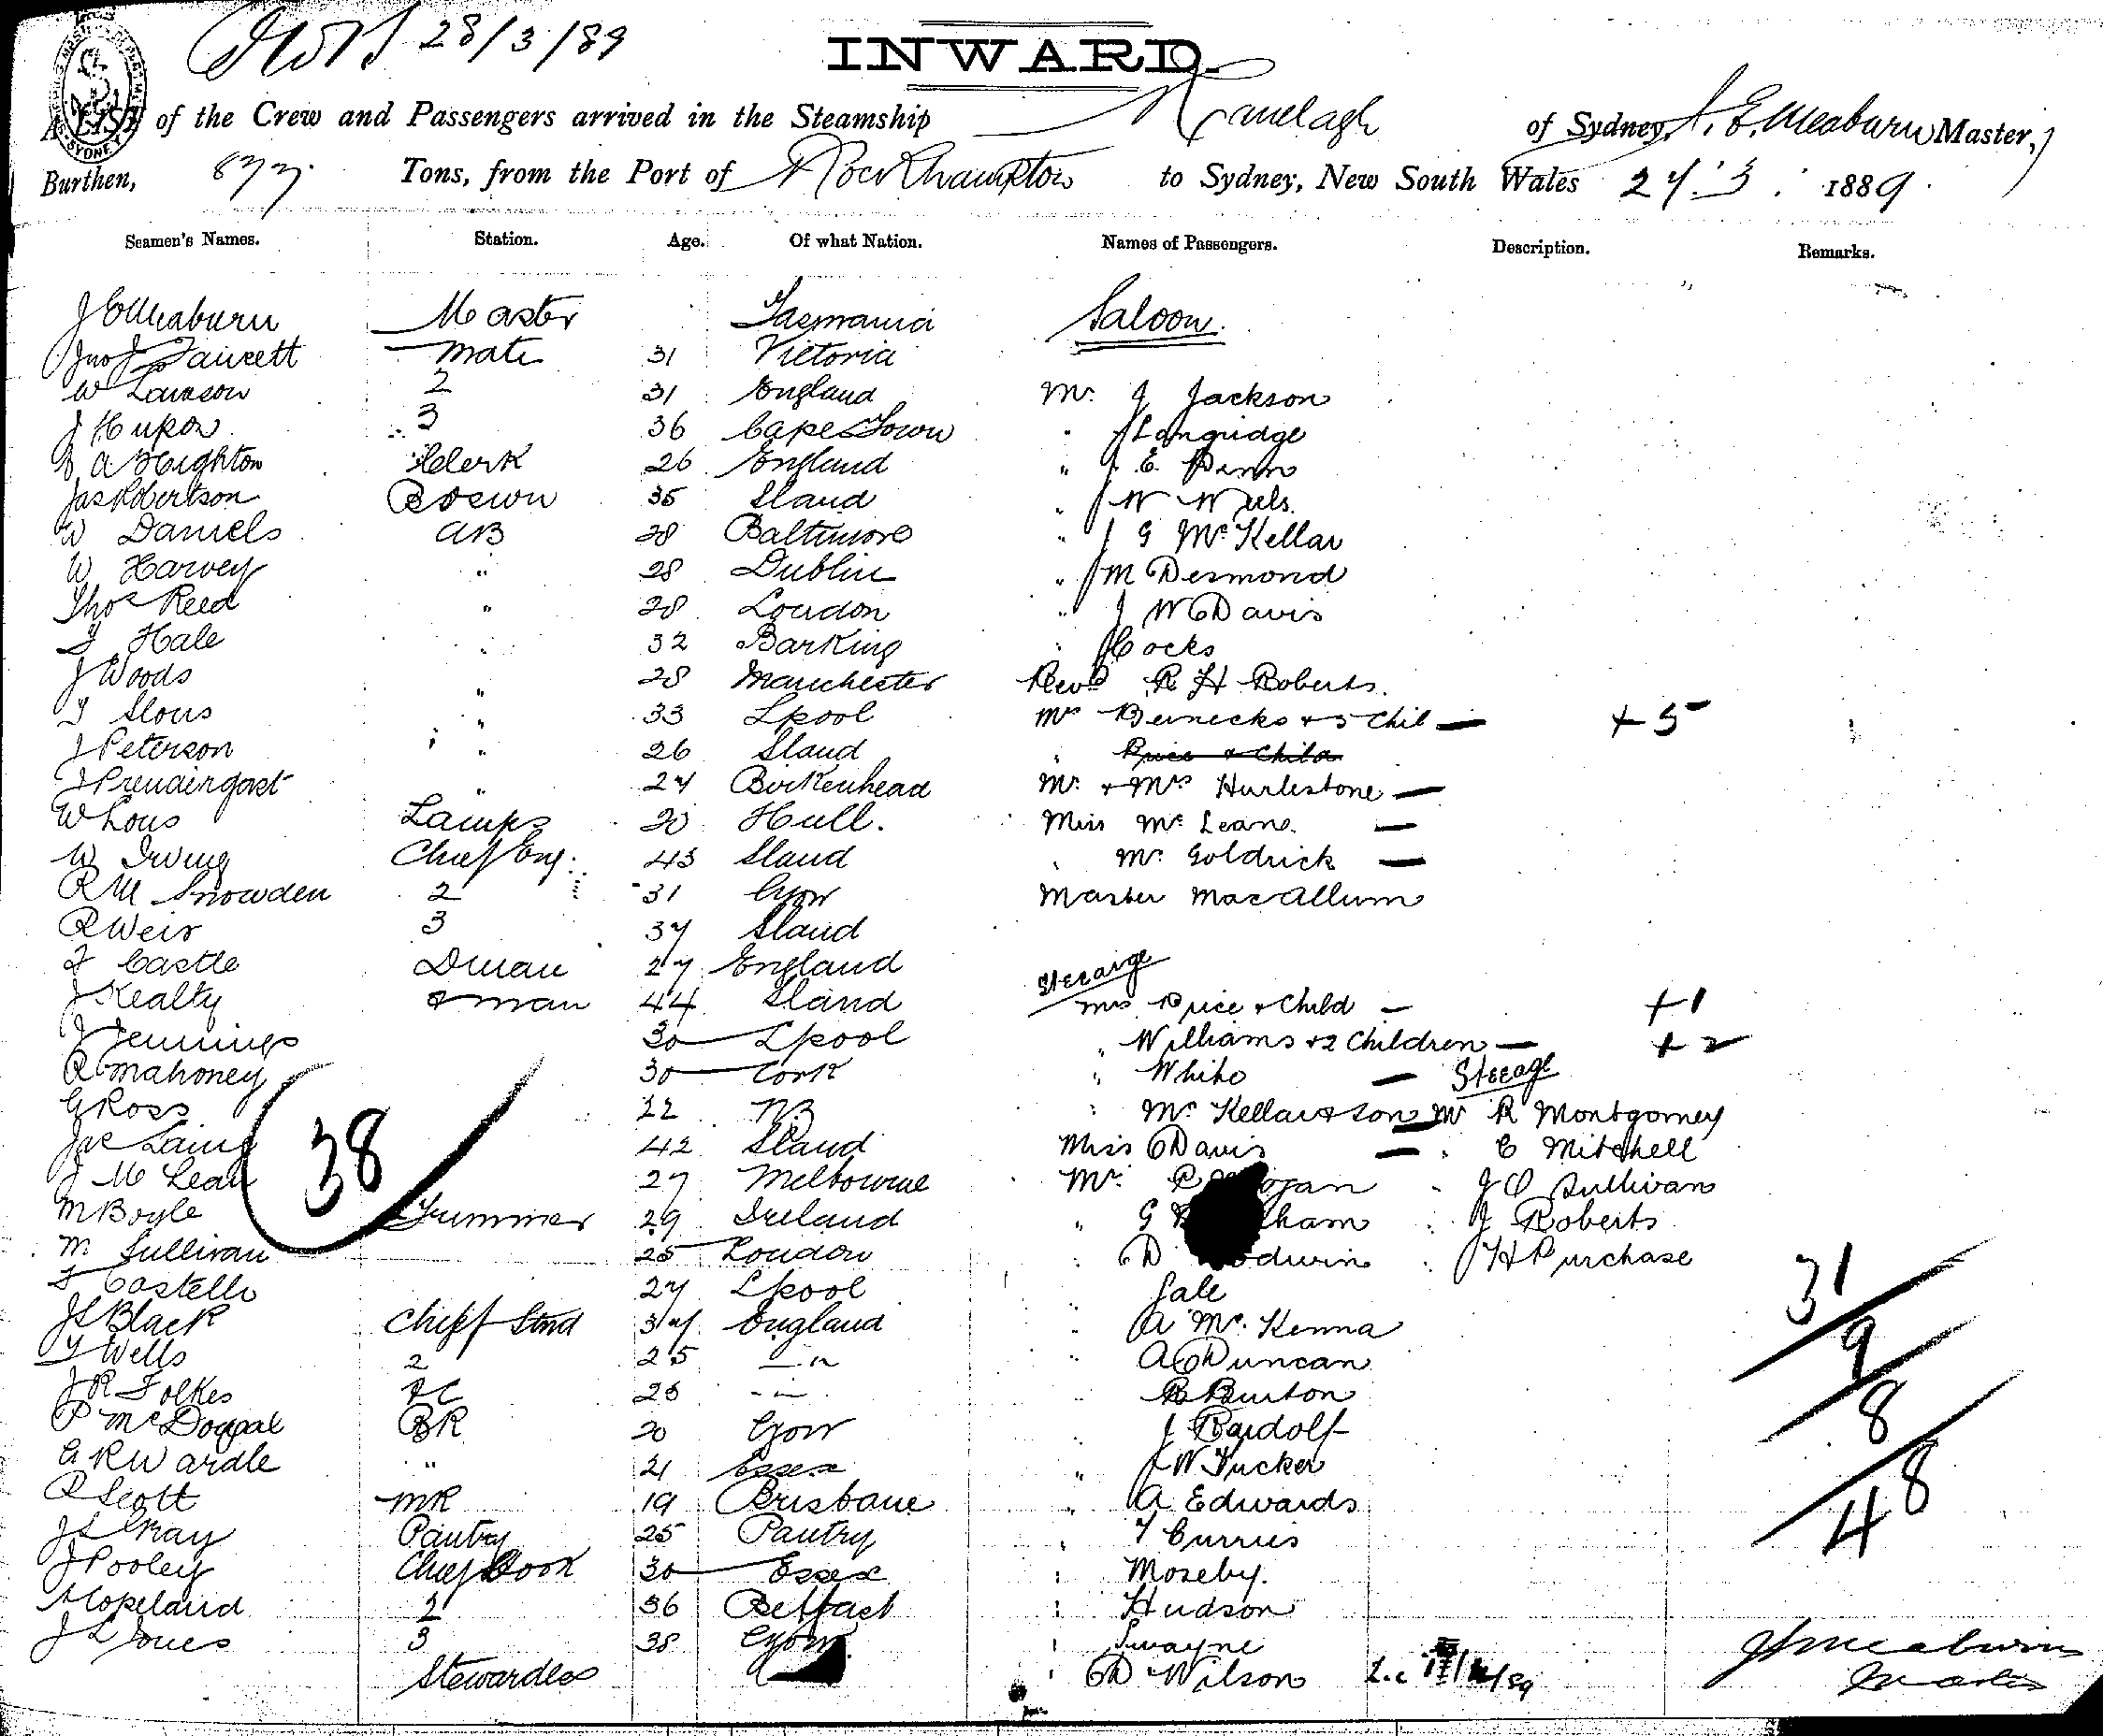 28/3/89
INWARD.
A LIST of the Crew and Passengers arrived in the Steamship Ranelagh of Sydney, J. E. Meaburn Master,
Burthen, 877. Tons, from the Port of Rockhampton to Sydney, New South Wales 27 3 1889
Seamen's Names. Station. Age. Of what Nation. Names of Passengers. Description. Remarks.
J E Meaburn Master Tasmania Saloon.
Jno J Faucett Mate 31 Victoria
W Lawson 2 31 England Mr. J Jackson
J 3 36 Cape Town " Langridge
A Heighton Clerk 26 England " J. E. Penn
Jas Robertson Boswn 35 Sland " W
W Daniels AB 28 Baltimore " J G McKellar
W Harvey " 28 Dublin " M Desmond
Thos Reed " 28 London " J W Davis
Hale " 32 Barking " Cocks
J Woods " 28 Manchester Revd R H Roberts.
" 33 Lpool Mrs Bernecks + 5 Chil — + 5
J Peterson " 26 Sland " Price & Child
Prendergast " 27 Birkenhead Mr. + Mrs Hurlestone —
W Lous Lamps 20 Hull. Miss McLean. —
W Irving Chief Eng. 43 Sland " McGoldrick —
R M Snowden 2 31 Gow Master MacAllum
R Weir 3 37 Sland
Castle Dman 27 England Steearge
J Kealty Fman 44 Sland Mrs Price & Child — + 1
J Jennings 30 Lpool " Williams + 2 Children — + 2
R Mahoney 30 Cork " White — Steeage
G Ross 22 NB " McKellar & son Mr R Montgomey
Jas Laing 42 Sland Miss Davis — " C Mitchell
J McLean 27 Melbourne Mr. ogan " J O Sullivan
38
M Boyle Trimmer 29 Ireland " G ham " J Roberts
M Sullivan 25 London " D odwin " H Purchase
Costello 27 Lpool " Gale
31
J S Black Chief Stwd 37 England " A McKenna
9
T Wells 2 25 — " — " A Duncan
J R Folkes FC 25 — " — " B Burton
P McDougal BR 20 Gow " J Bardolf
8
G R Wardle " 21 Essex " J W Tucker
R Scott MR 19 Brisbane " A Edwards
48
J S Gray Pantry 25 Pantry " T Currie
J Pooley Chief Cook 30 Essex " Moseby.
Copeland 2 36 Belfast " Hudson
J L Jones 3 38 " Swayne
Stewardess " D Wilson
J E Meaburn
Master